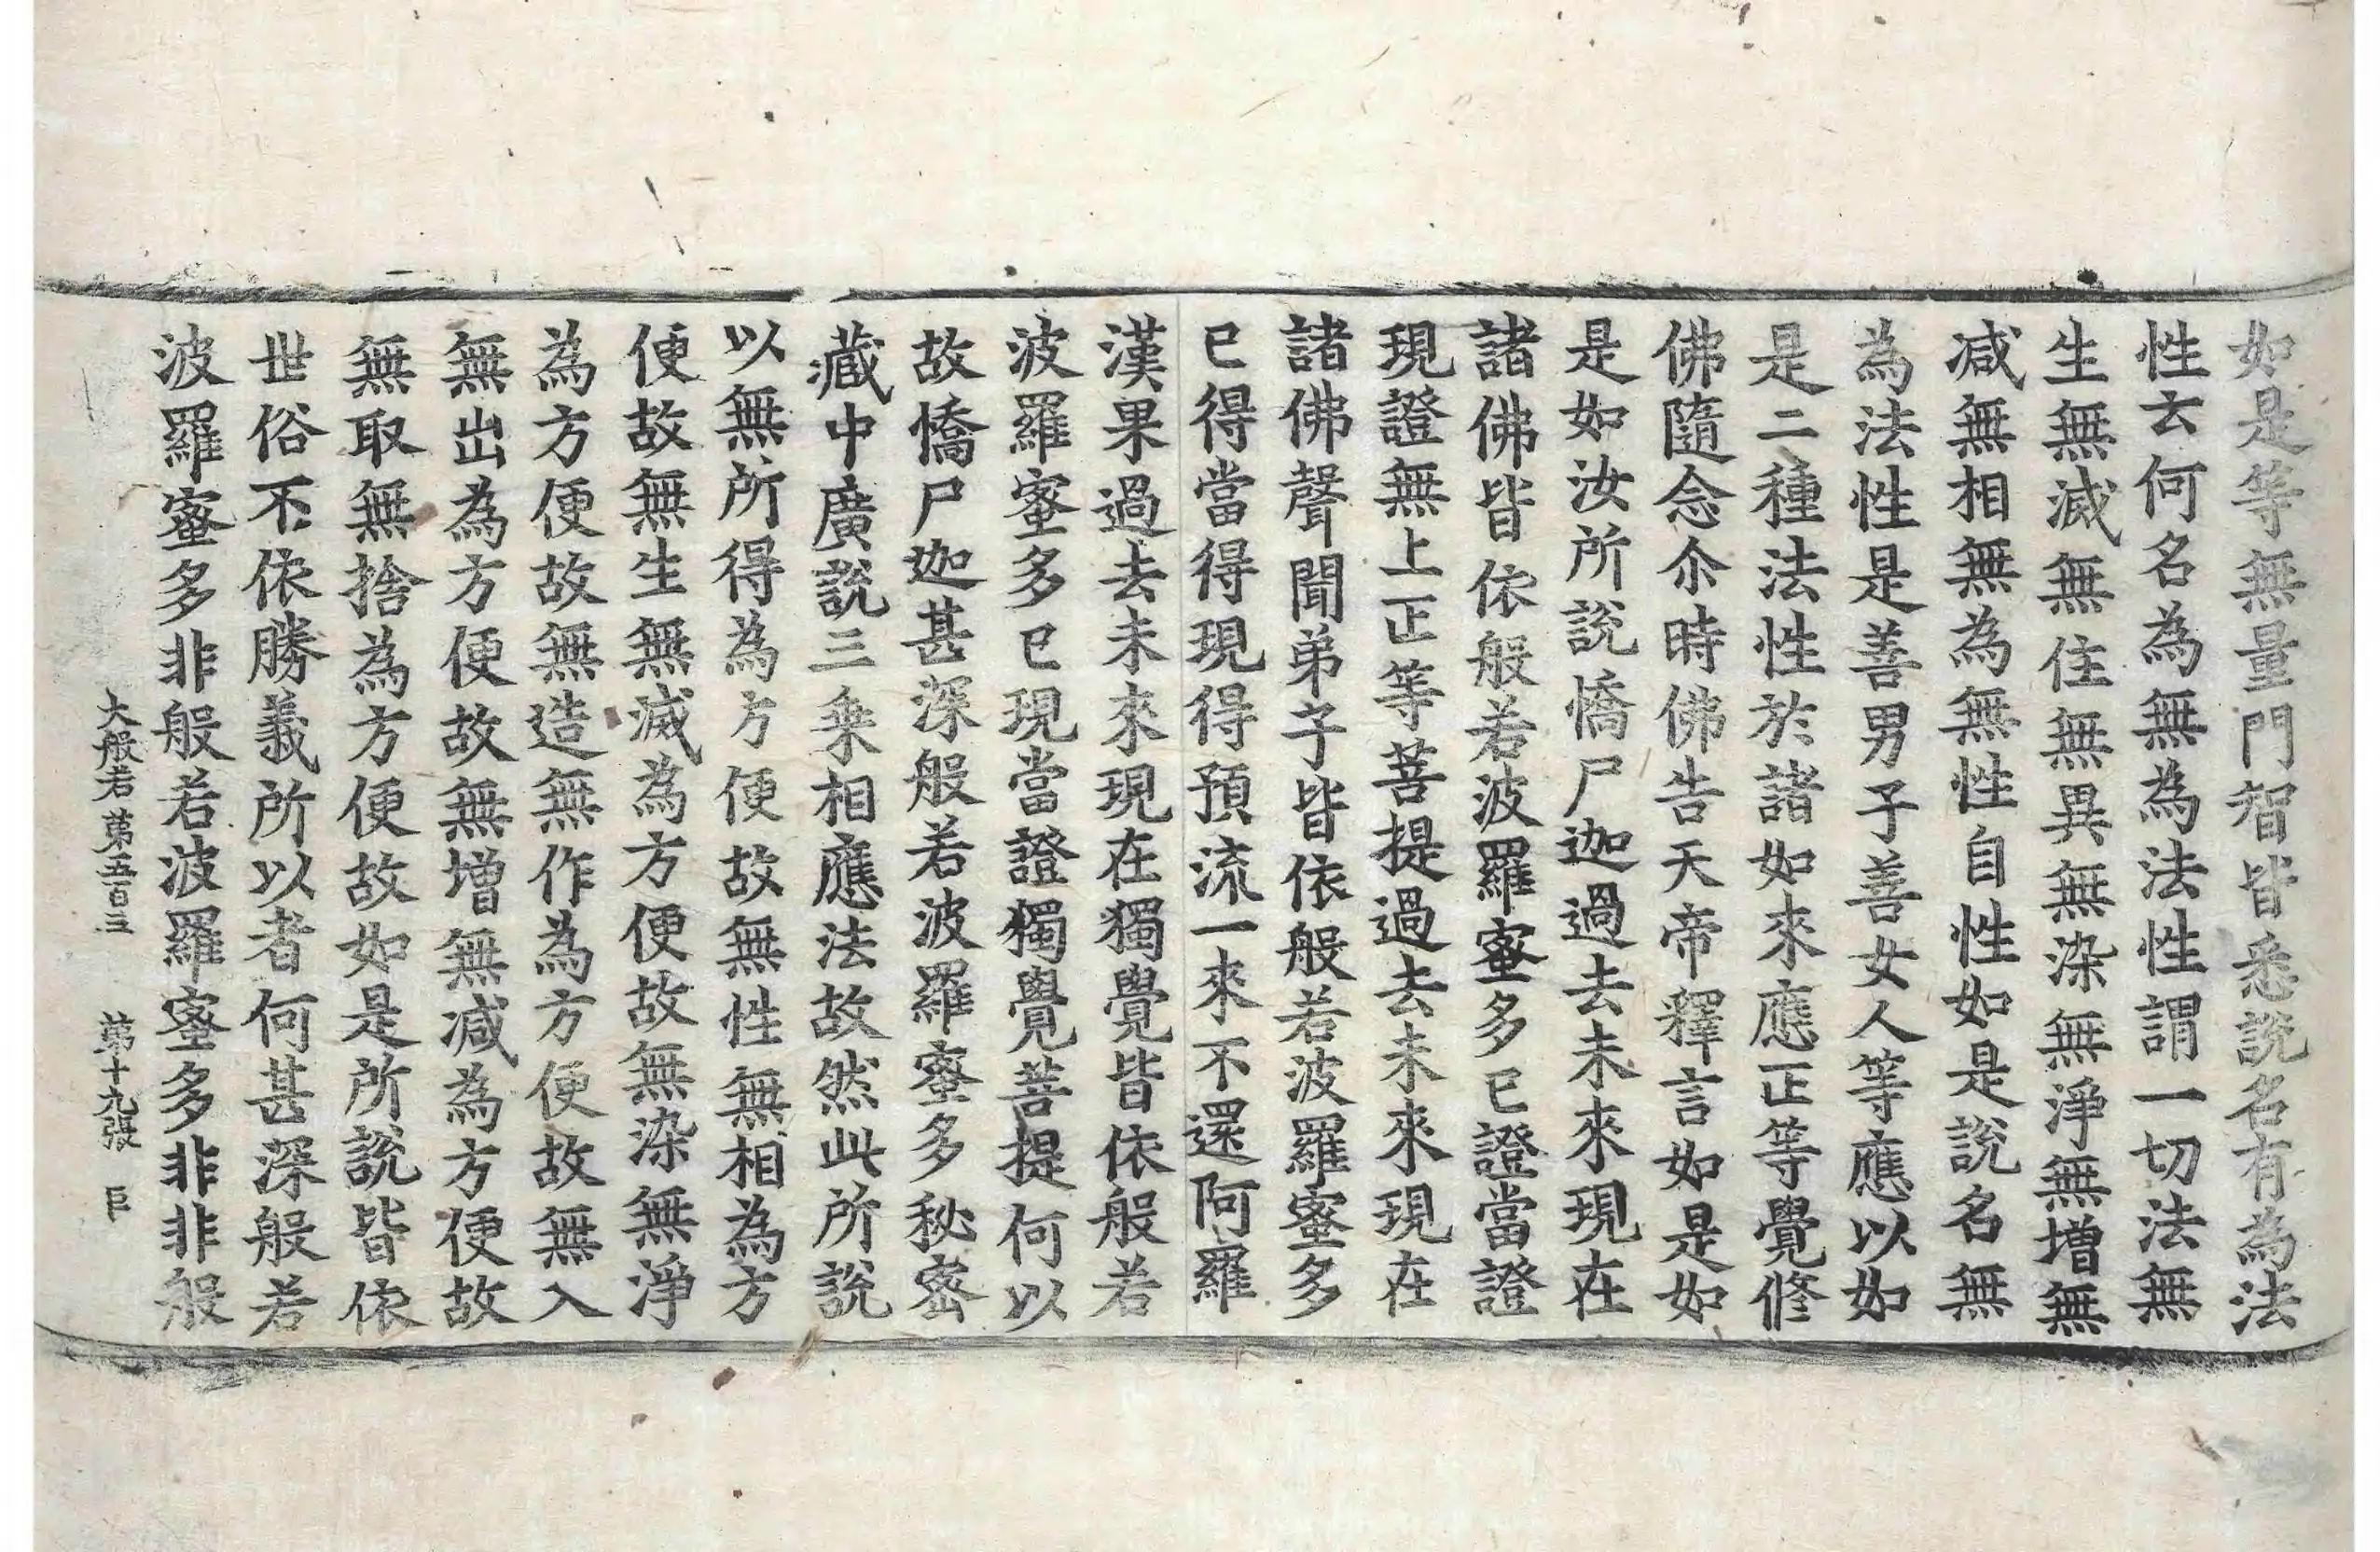 如是等無量門智皆悉說名有為法
性云何名為無為法性謂一切法無
生無滅無住無異無染無淨無增無
減無相無為無性自性如是說名無
為法性是善男子善女人等應以如
是二種法性於諸如來應正等覺修
佛隨念尒時佛告天帝釋言如是如
是如汝所說憍尸迦過去未來現在
諸佛皆依般若波羅蜜多已證當證
現證無上正等菩提過去未來現在
諸佛聲聞弟子皆依般若波羅蜜多
已得當得現得預流一來不還阿羅
漢果過去未來現在獨覺皆依般若
波羅蜜多已現當證獨覺菩提何以
故憍尸迦甚深般若波羅蜜多秘密
藏中廣說三乗相應法故然此所說
以無所得為方便故無性無相為方
便故無生無滅為方便故無染無淨
為方便故無造無作為方便故無入
無出為方便故無增無減為方便故
無取無捨為方便故如是所說皆依
世俗不依勝義所以者何甚深般若
波羅蜜多非般若波羅蜜多非非般
大般若第五百三 第十九張 巨